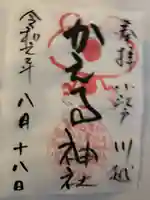 奉拝 小江戸 川越
かえる神社
令和元年 八月十八日